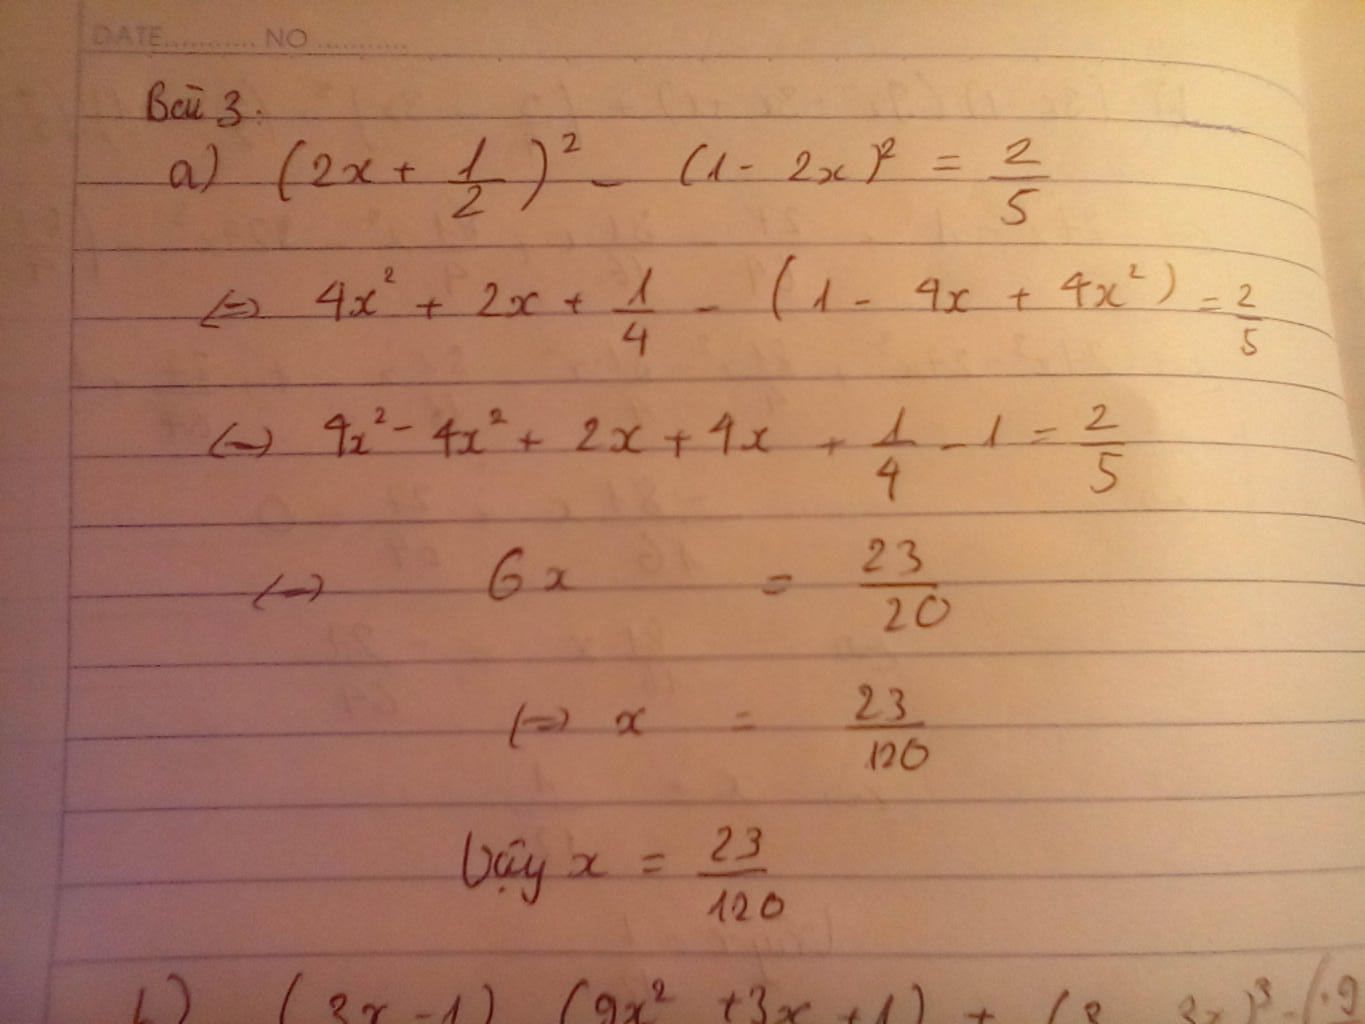 DATE........... NO ...........
Bài 3:
a) (2x + 1/2)² - (1 - 2x)² = 2/5
(=) 4x² + 2x + 1/4 - (1 - 4x + 4x²) = 2/5
(=) 4x² - 4x² + 2x + 4x + 1/4 - 1 = 2/5
(=) 6x = 23/20
(=) x = 23/120
Vậy x = 23/120
b) (3x - 1) (9x² + 3x + 1) +